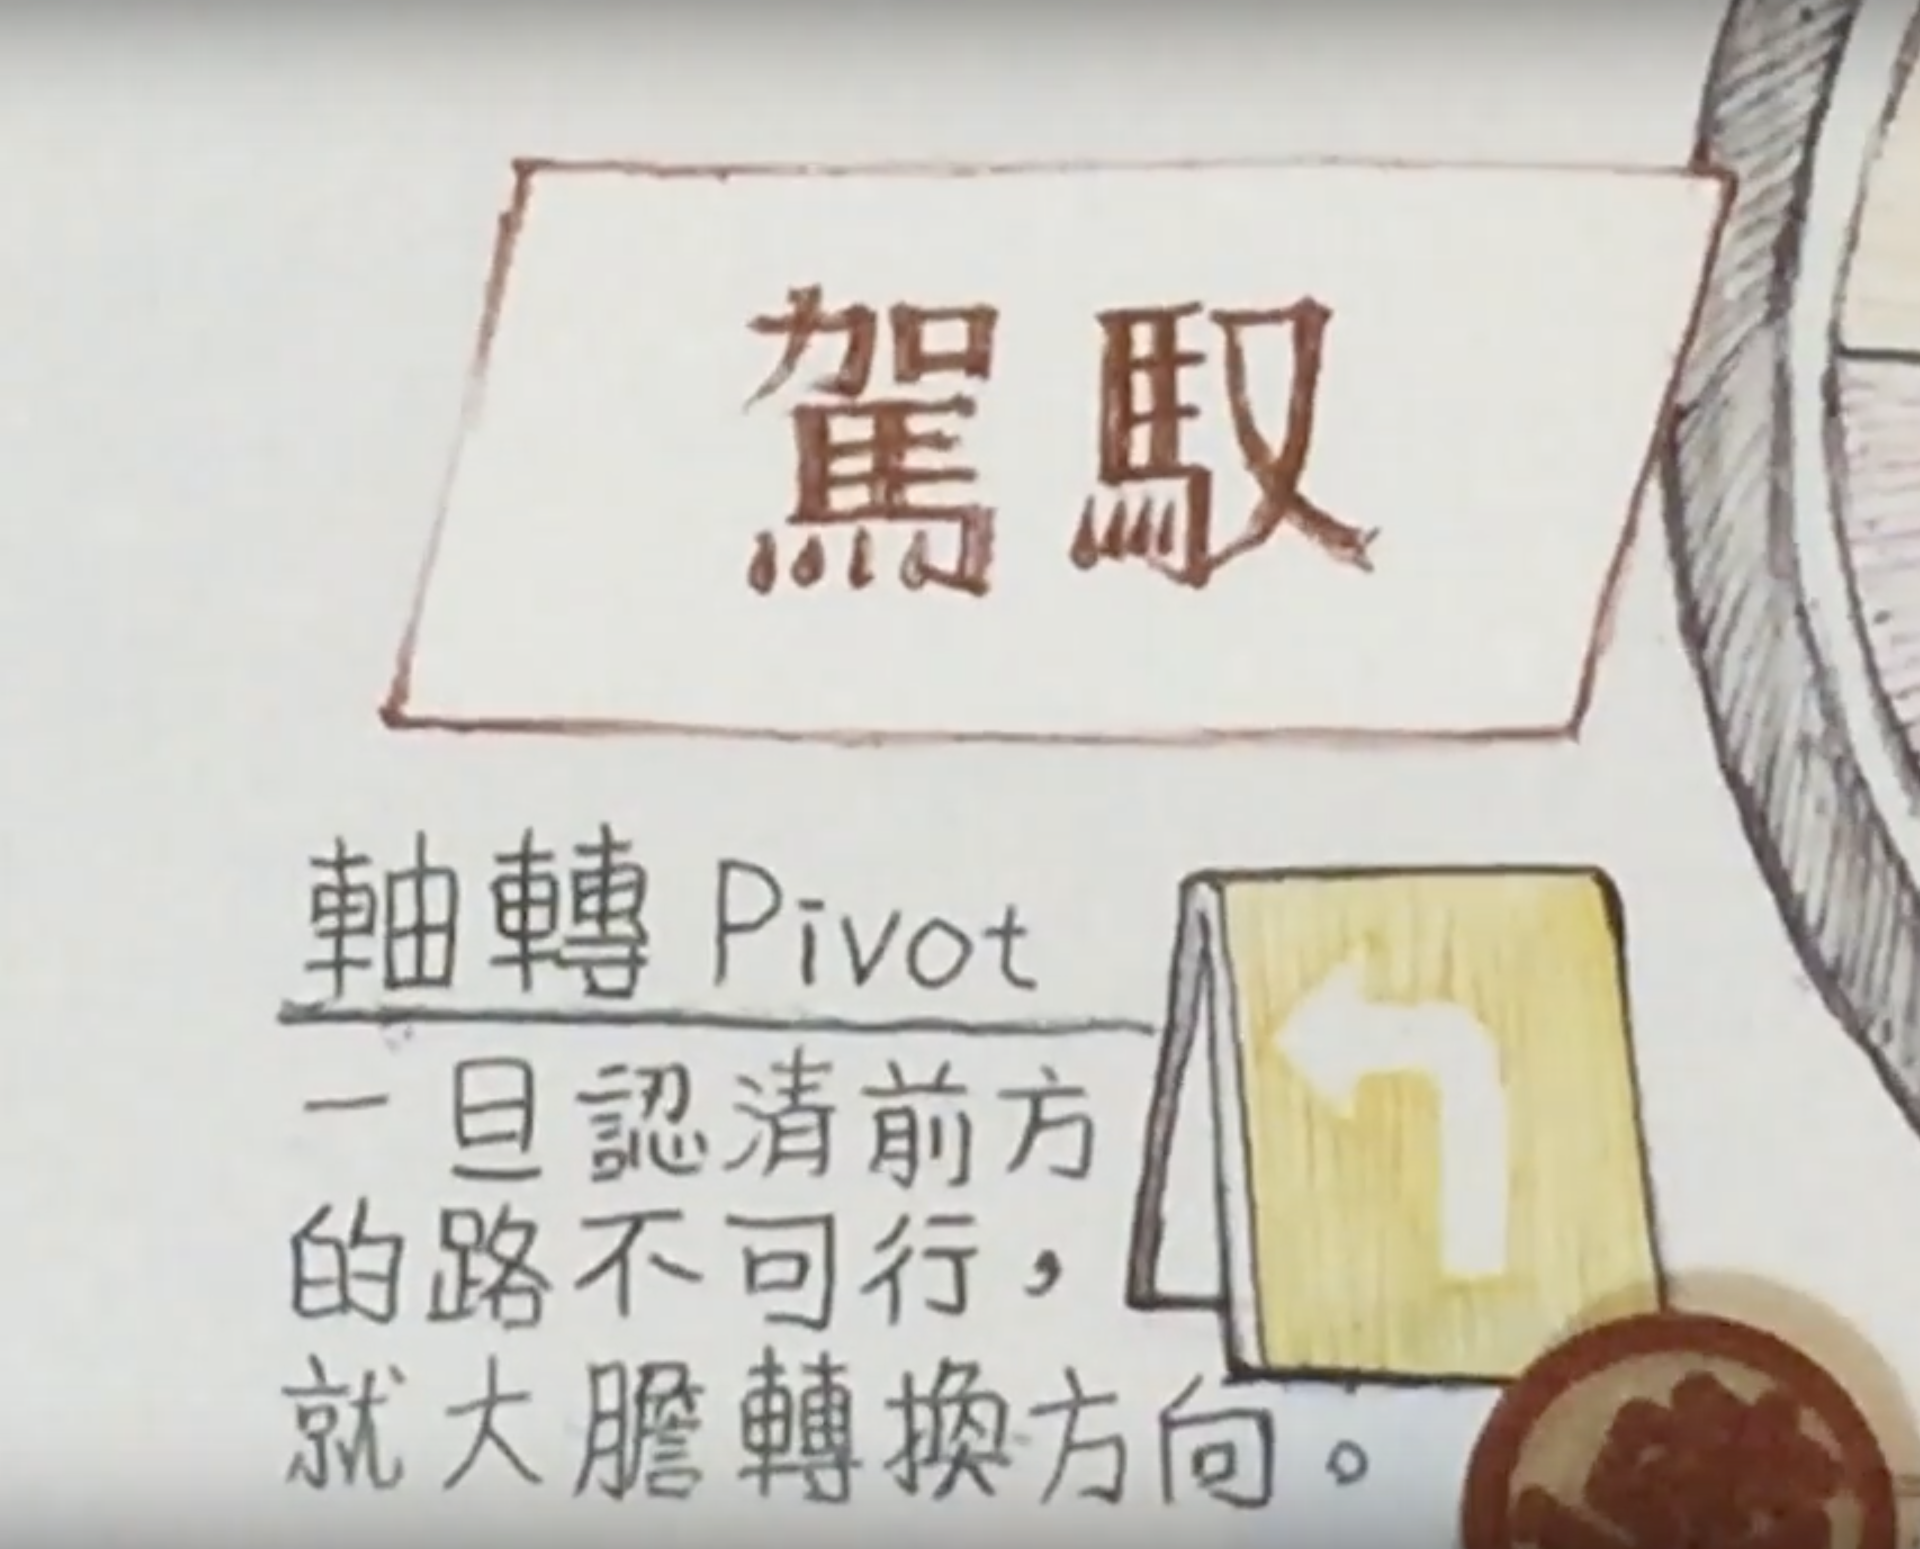 駕馭
軸轉 Pivot
一旦認清前方
的路不可行，
就大膽轉換方向。